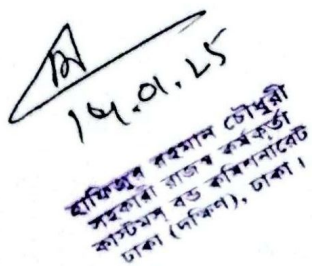 ১৫.০১.২৫
হাফিজুর রহমান চৌধুরী
সহকারী রাজস্ব কর্মকর্তা
কাস্টমস বন্ড কমিশনারেট
ঢাকা (দক্ষিণ), ঢাকা।